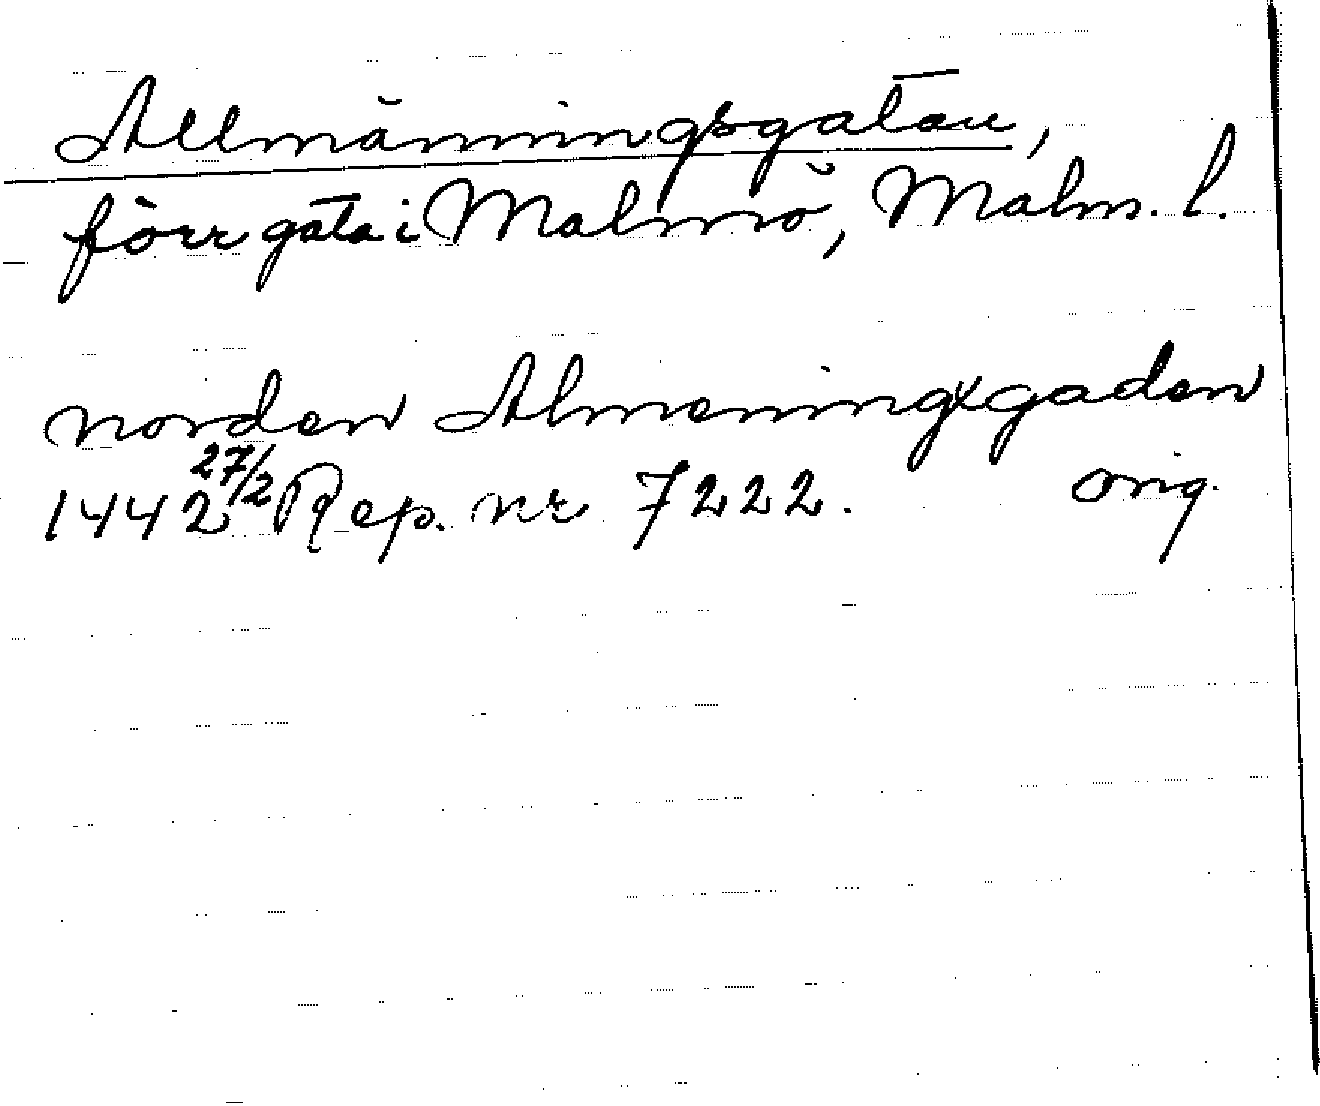 Allmänningsgatan,
förr gata i Malmö, Malm. l.
norden Almeningxgaden
1442 27/2 Rep. nr 7222. orig.